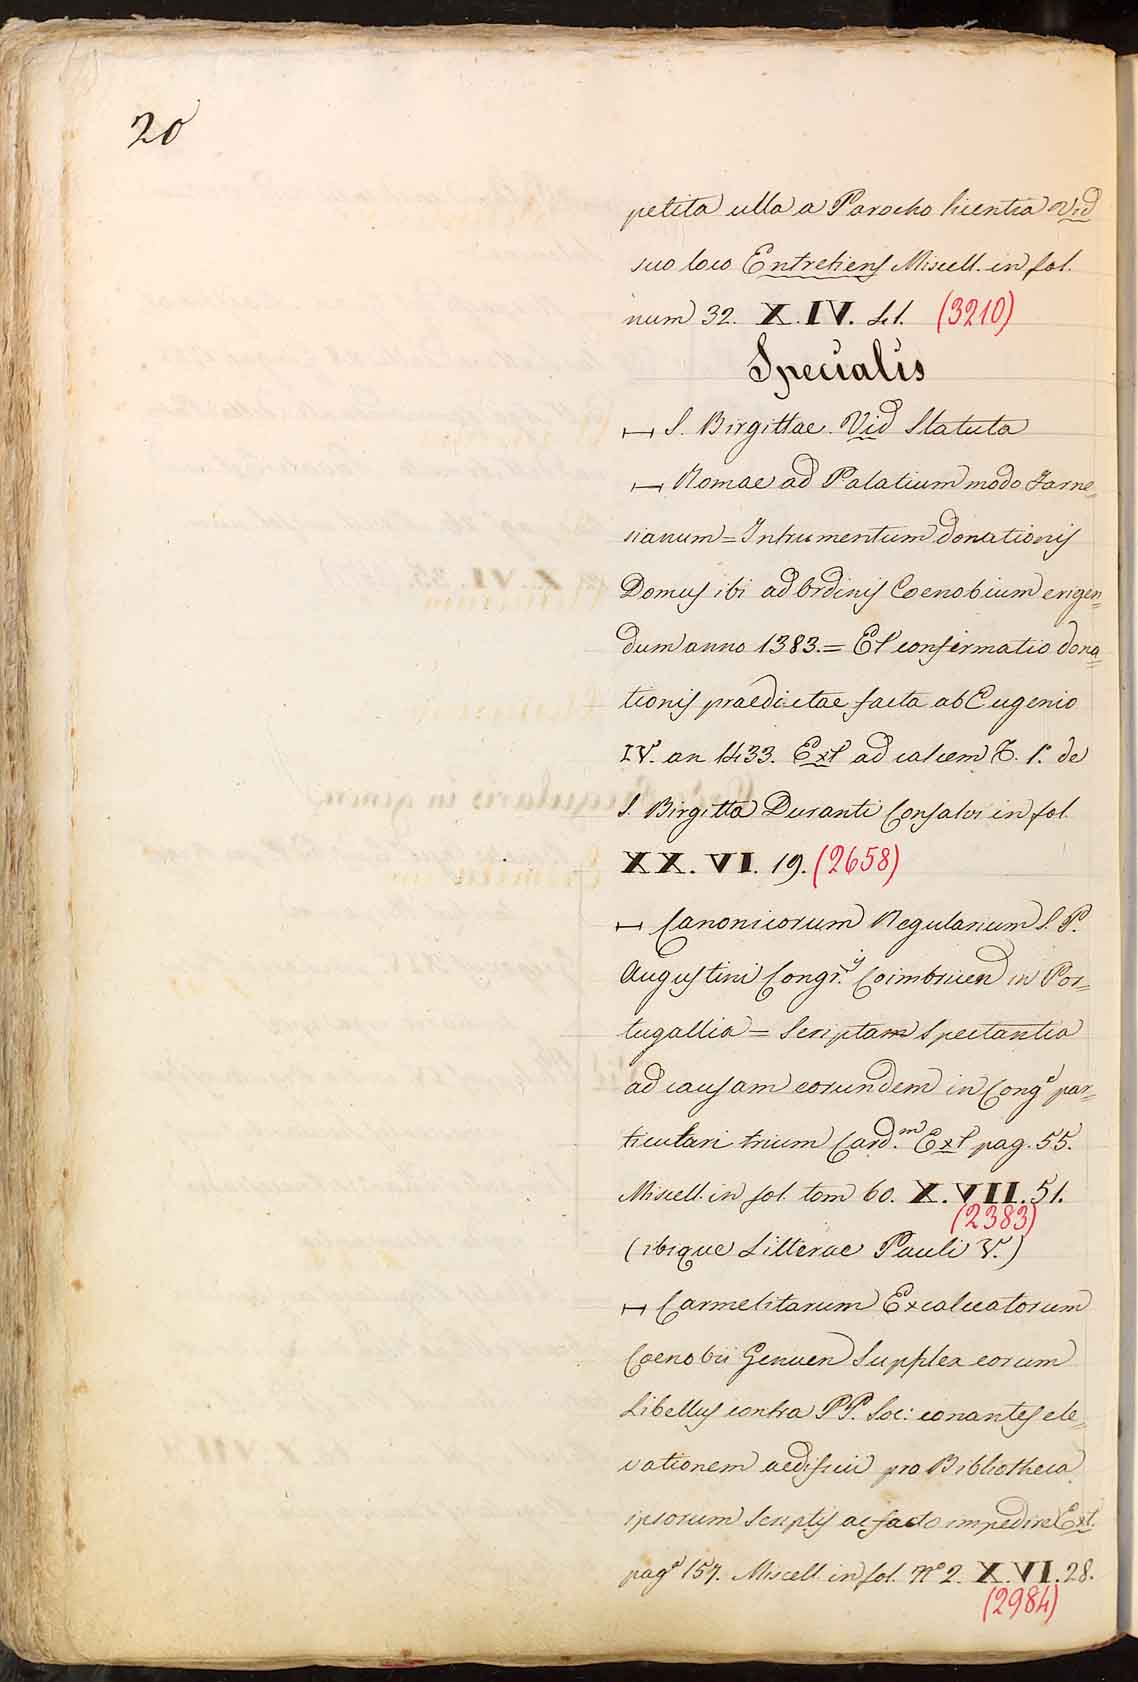 20
petita ulla a Parocho licentia Vid
suo loco Entretiens Miscell. in fol.
num 32. X. IV. 41. (3210)
Specialis
⊢⊣ S. Birgittae. Vid Statuta
⊢⊣ Romae ad Palatium modo Farne=
sianum = Intrumentum donationis
Domus ibi ad Ordinis Coenobium erigen=
dum anno 1383. = Et confirmatio dona=
tionis praedictae facta ab Eugenio
IV. an 1433. Ext ad calcem T. 1º. de
S. Birgitta Duranti Consalvi in fol.
XX. VI. 19. (2658)
⊢⊣ Canonicorum Regularium S. P.
Augustini Congr.is Coimbricen in Por=
tugallia = Scriptam Spectantia
ad causam eorundem in Conge par=
ticulari trium Card.m Ext pag. 55.
Miscell. in fol. tom 60. X. VII. 51.
(2383)
(ibique Litterae Pauli V.)
⊢⊣ Carmelitarum Excalceatorum
Coenobii Genuen Supplex eorum
Libellus contra PP. Soc: conantes ele=
vationem aedificii pro Bibliotheca
ipsorum Scriptis ac facto impedire Ext.
page 157. Miscell. in fol. Nº 2. X. VI. 28.
(2984)